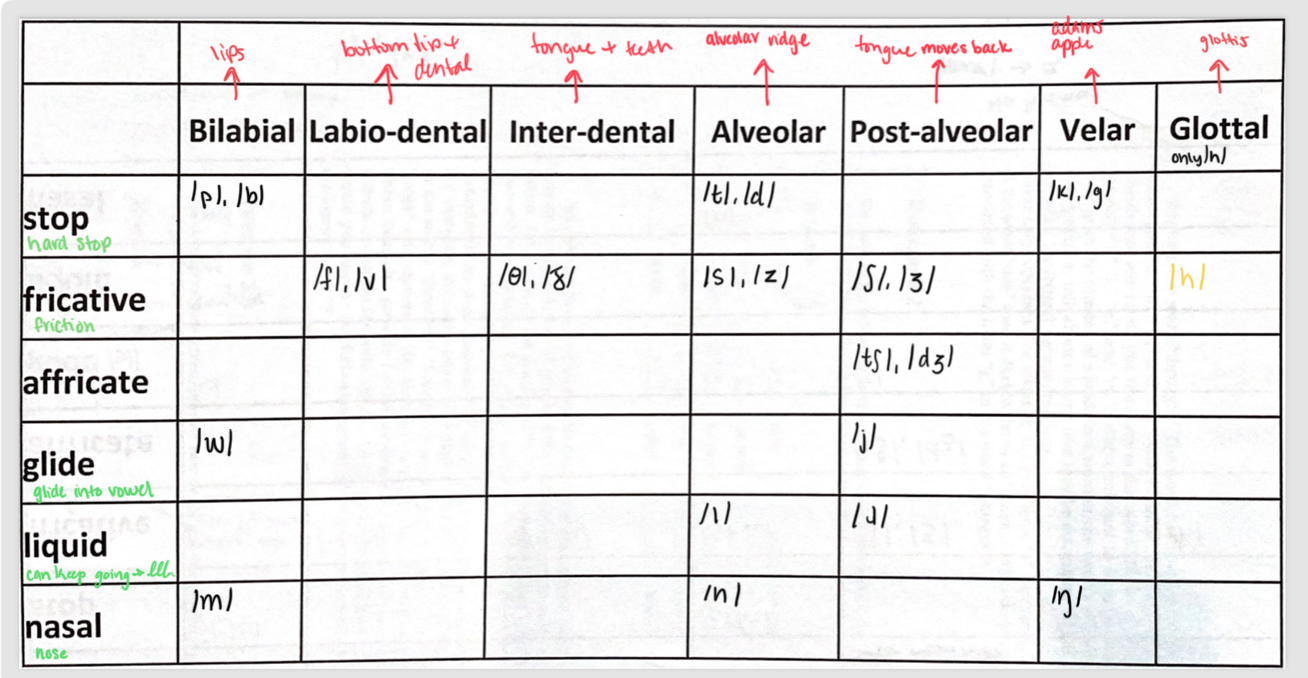 lips bottom lip + dental tongue + teeth alveolar ridge tongue moves back adams apple glottis
Bilabial Labio-dental Inter-dental Alveolar Post-alveolar Velar Glottal
only /h/
stop /p/, /b/ /t/, /d/ /k/, /g/
hard stop
fricative /f/, /v/ /θ/, /ð/ /s/, /z/ /ʃ/, /ʒ/ /h/
friction
affricate /tʃ/, /dʒ/
glide /w/ /j/
glide into vowel
liquid /l/ /ɹ/
can keep going → lll
nasal /m/ /n/ /ŋ/
nose